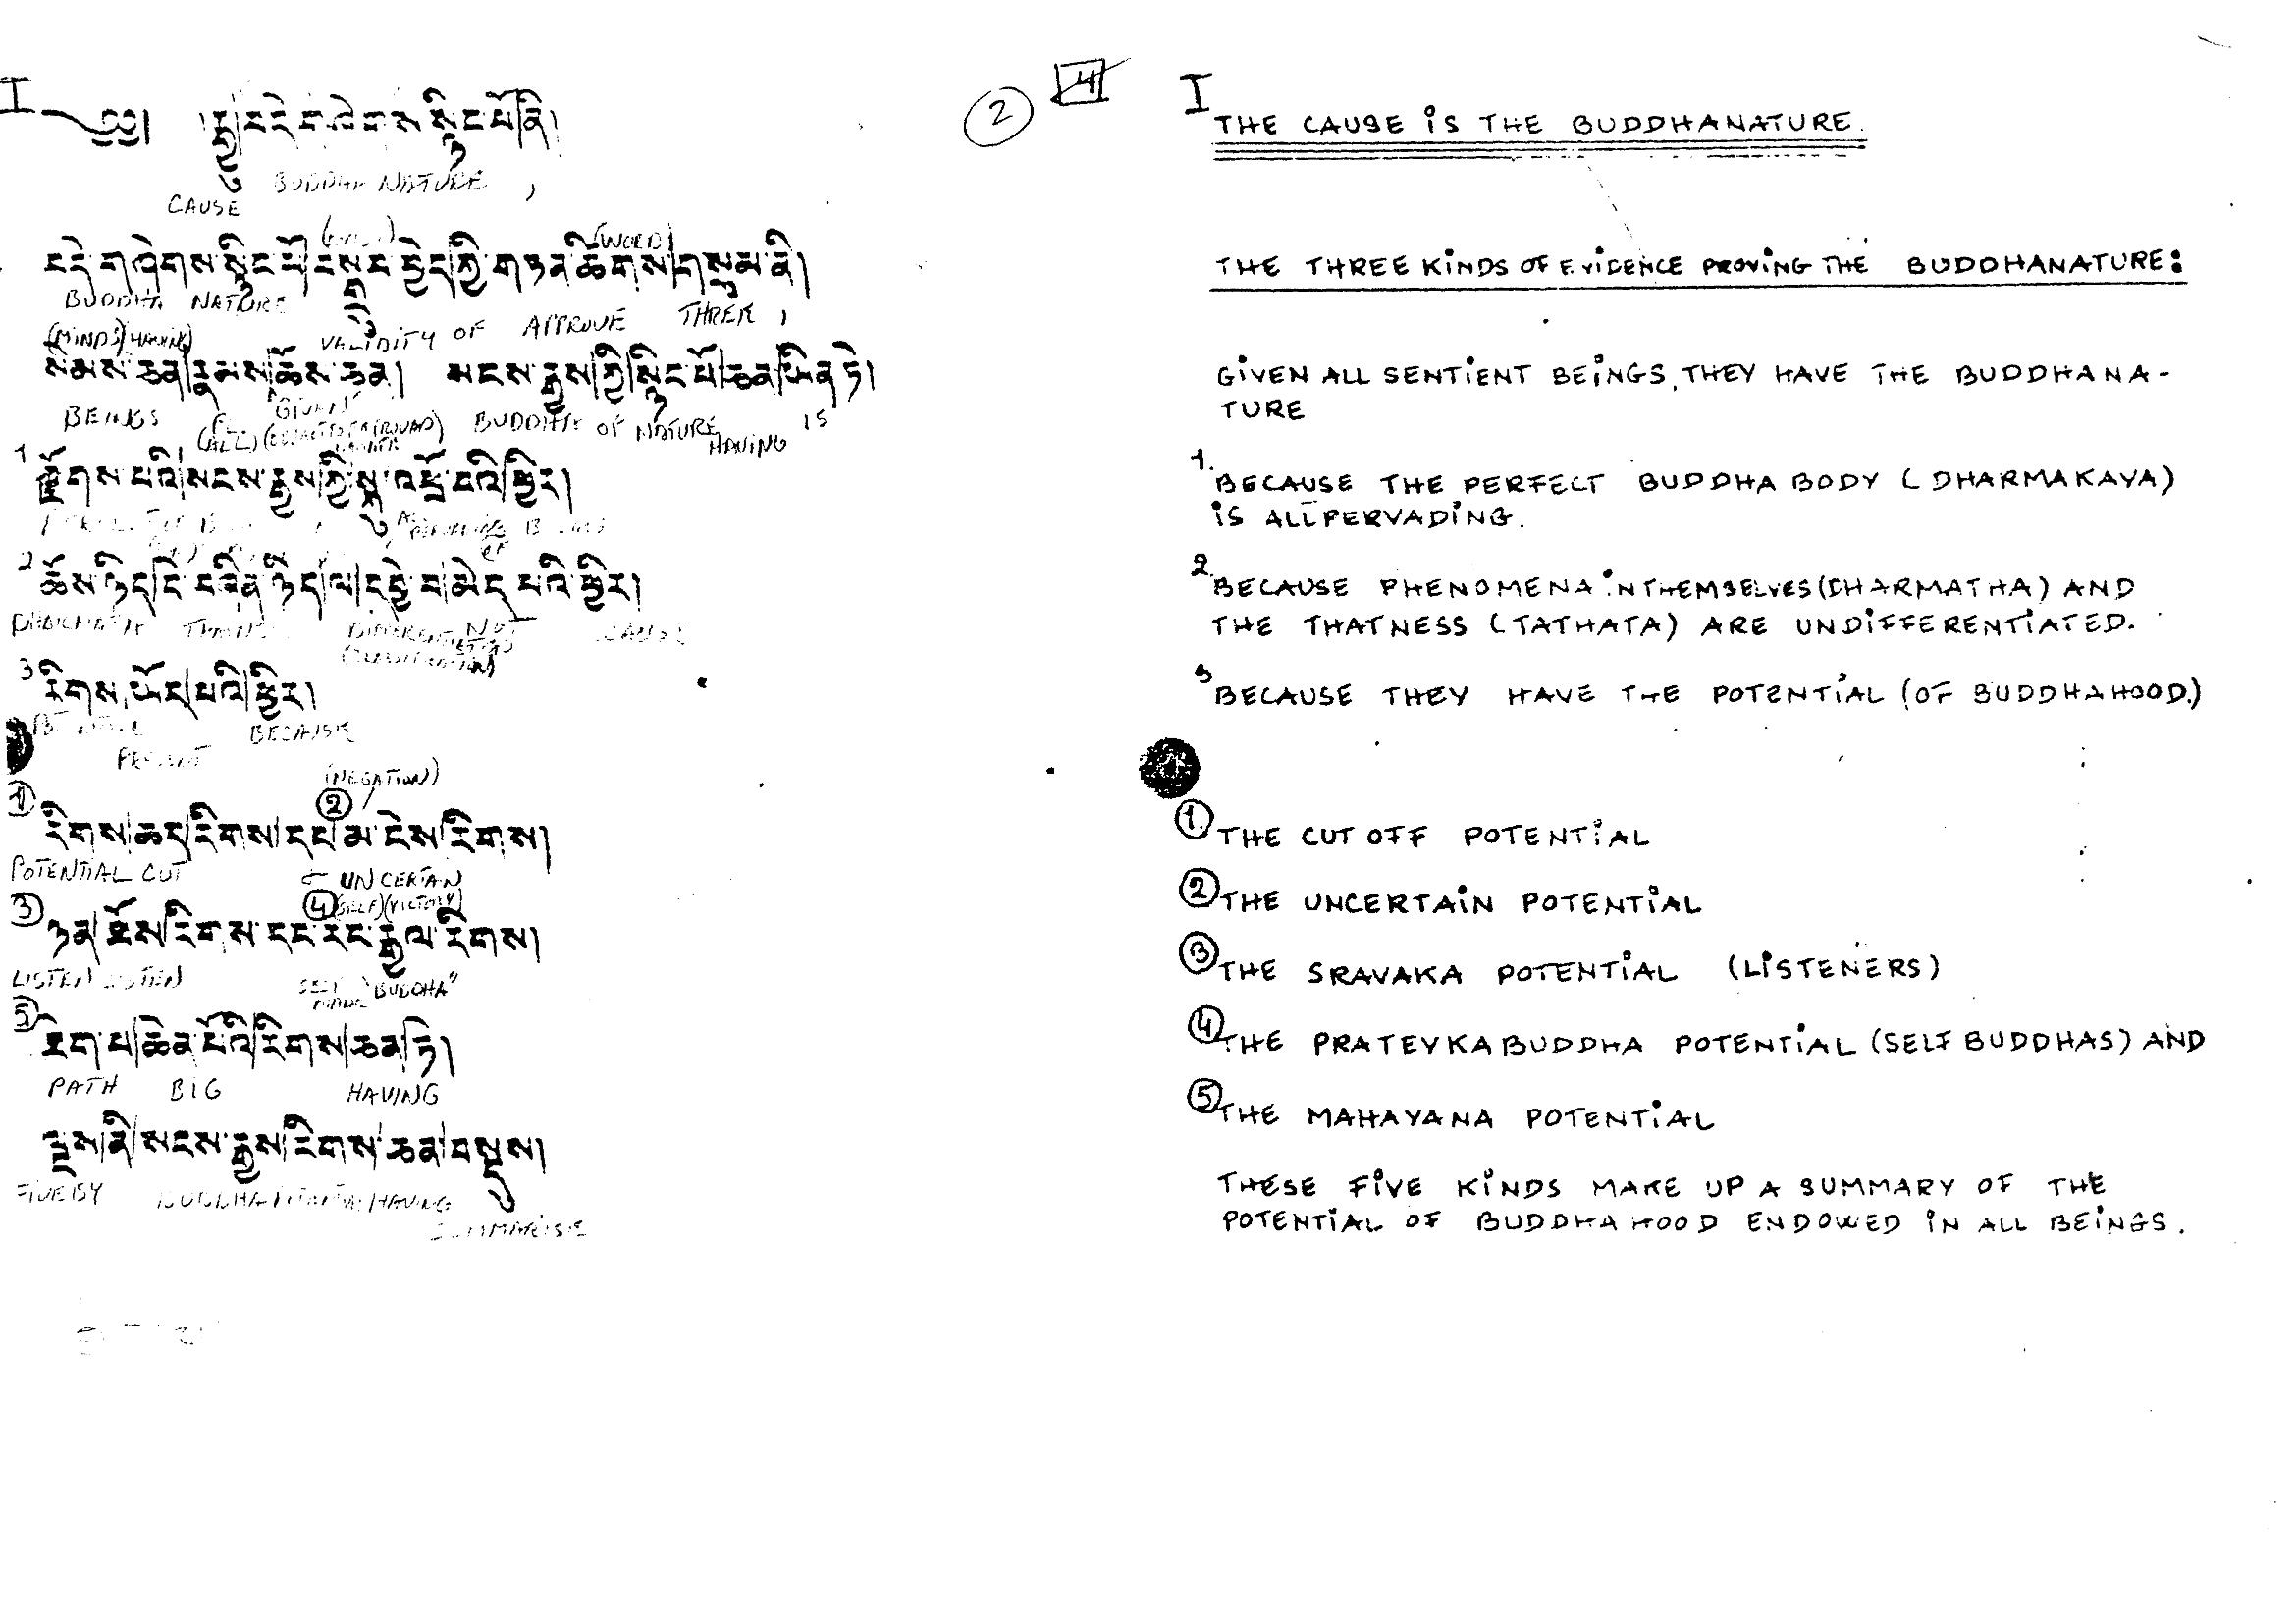 I
རྒྱུ་བདེ་གཤེགས་སྙིང་པོ་ནི།
BUDDHA NATURE ,
CAUSE
(WORD)
བདེ་གཤེགས་སྙིང་པོ་བསྒྲུབ་བྱེད་ཀྱི་གཏན་ཚིགས་གསུམ་ནི།
BUDDHA NATURE
VALIDITY OF APPROVE THREE ,
(MINDS)(HAVING)
སེམས་ཅན་རྣམས་ཆོས་ཅན། སངས་རྒྱས་ཀྱི་སྙིང་པོ་ཅན་ཡིན་ཏེ།
BEINGS GIVEN BUDDHA OF NATURE IS
(ALL) HAVING
1 རྫོགས་པའི་སངས་རྒྱས་ཀྱི་སྐུ་འཕྲོ་བའི་ཕྱིར།
2 ཆོས་ཉིད་དེ་བཞིན་ཉིད་ལ་དབྱེ་བ་མེད་པའི་ཕྱིར།
NOT
3 རིགས་ཡོད་པའི་ཕྱིར།
BECAUSE
(NEGATION)
① ②
རིགས་ཆད་རིགས་དང་མ་ངེས་རིགས།
POTENTIAL CUT & UNCERTAN
③ ④ (SELF)(VICTORY)
ཉན་ཐོས་རིགས་དང་རང་རྒྱལ་རིགས།
LISTEN LISTEN SELF MADE "BUDDHA"
⑤
ཐེག་པ་ཆེན་པོའི་རིགས་ཅན་ཏེ།
PATH BIG HAVING
ལྔས་ནི་སངས་རྒྱས་རིགས་ཅན་བསྡུས།
FIVE BY HAVING
SUMMARISE
② 4
I
THE CAUSE iS THE BUDDHANATURE.
THE THREE KiNDS OF EViDENCE PROViNG THE BUDDHANATURE:
GiVEN ALL SENTiENT BEiNGS, THEY HAVE THE BUDDHANA-
TURE
1. BECAUSE THE PERFECT BUDDHA BODY (DHARMAKAYA)
iS ALLPERVADiNG.
2. BECAUSE PHENOMENA iN THEMSELVES (DHARMATHA) AND
THE THATNESS (TATHATA) ARE UNDiFFERENTiATED.
3 BECAUSE THEY HAVE THE POTENTiAL (OF BUDDHAHOOD.)
① THE CUT OFF POTENTiAL
② THE UNCERTAiN POTENTiAL
③ THE SRAVAKA POTENTiAL (LiSTENERS)
④ THE PRATEYKABUDDHA POTENTiAL (SELF BUDDHAS) AND
⑤ THE MAHAYANA POTENTiAL
THESE FiVE KiNDS MAKE UP A SUMMARY OF THE
POTENTiAL OF BUDDHAHOOD ENDOWED iN ALL BEiNGS.